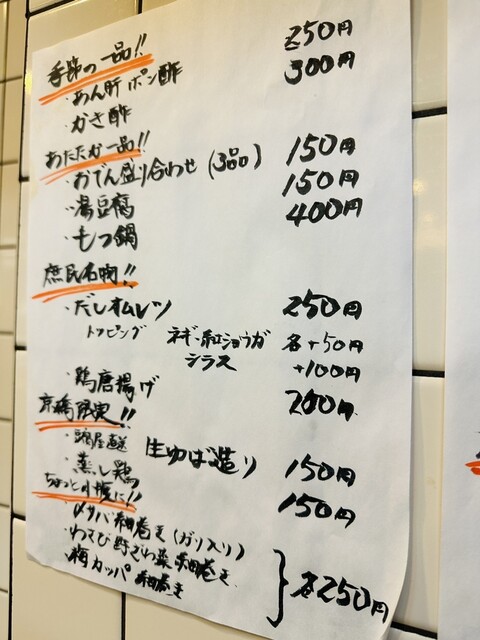 季節の一品!!
・あん肝ポン酢 250円
・かき酢 300円
あたたか一品!!
・おでん盛り合わせ(3品) 150円
・湯豆腐 150円
・もつ鍋 400円
庶民名物!!
・だしオムレツ 250円
トッピング ネギ・紅ショウガ 各+50円
シラス +100円
・鶏唐揚げ 200円
京橋限定!!
直送 生ゆば造り 150円
・蒸し鶏 150円
ちょっと小腹に!!
・〆サバ細巻き(ガリ入り)
・わさび野ざわ菜細巻き
・梅カッパ細巻き
各250円